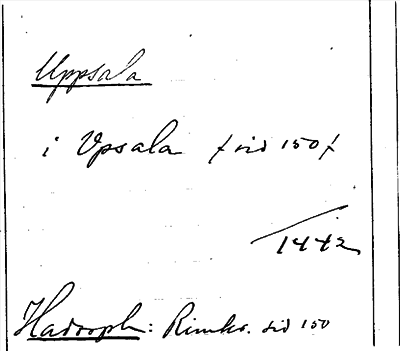 Uppsala
i Vpsala /sid 150/
1442
Hadorph: Rimkr. sid 150